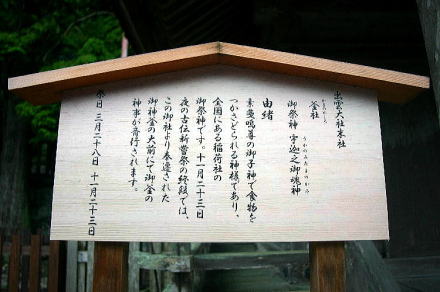 出雲大社末社
かまのやしろ
釜社
うかのみたまのかみ
御祭神 宇迦之御魂神
由緒
素戔嗚尊の御子神で食物を
つかさどられる神様であり、
全国にある稲荷社の
御祭神です。十一月二十三日
夜の古伝新嘗祭の終段では、
この御社より奉遷された
御神釜の大前にて御釜の
神事が斎行されます。
祭日 三月二十八日 十一月二十三日